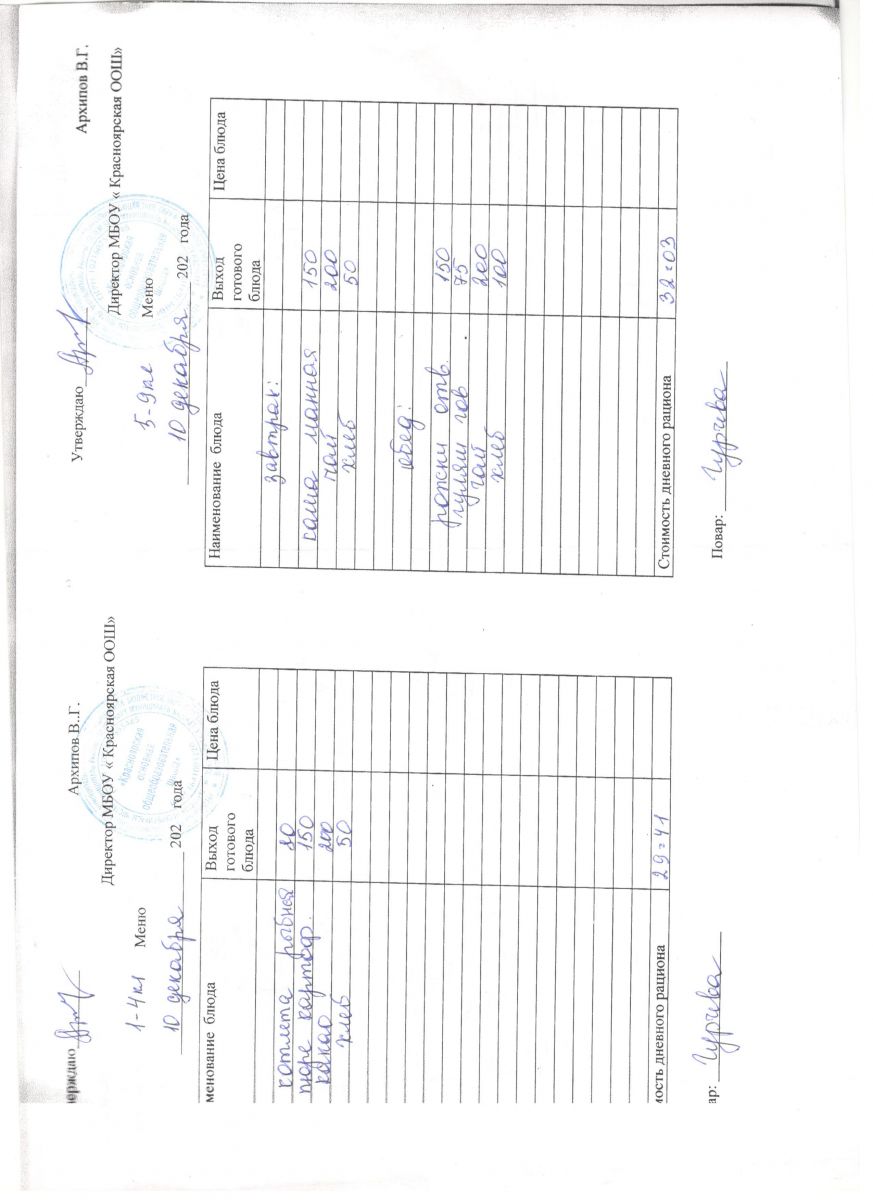 Утверждаю
Архипов В..Г.
Директор МБОУ « Красноярская ООШ»
«Красноярская
основная
общеобразовательная
школа»
1-4кл Меню
10 декабря 202 года
менование блюда Выход готового блюда Цена блюда
котлета рыбная 80
пюре картоф. 150
какао 200
хлеб 50
мость дневного рациона 29=41
ар: Гурчева
Утверждаю
Архипов В.Г.
Директор МБОУ « Красноярская ООШ»
5-9кл Меню
10 декабря 202 года
Наименование блюда Выход готового блюда Цена блюда
завтрак:
каша манная 150
чай 200
хлеб 50
обед:
рожки отв. 150
гуляш гов 75
чай 200
хлеб 100
Стоимость дневного рациона 32=03
Повар: Гурчева